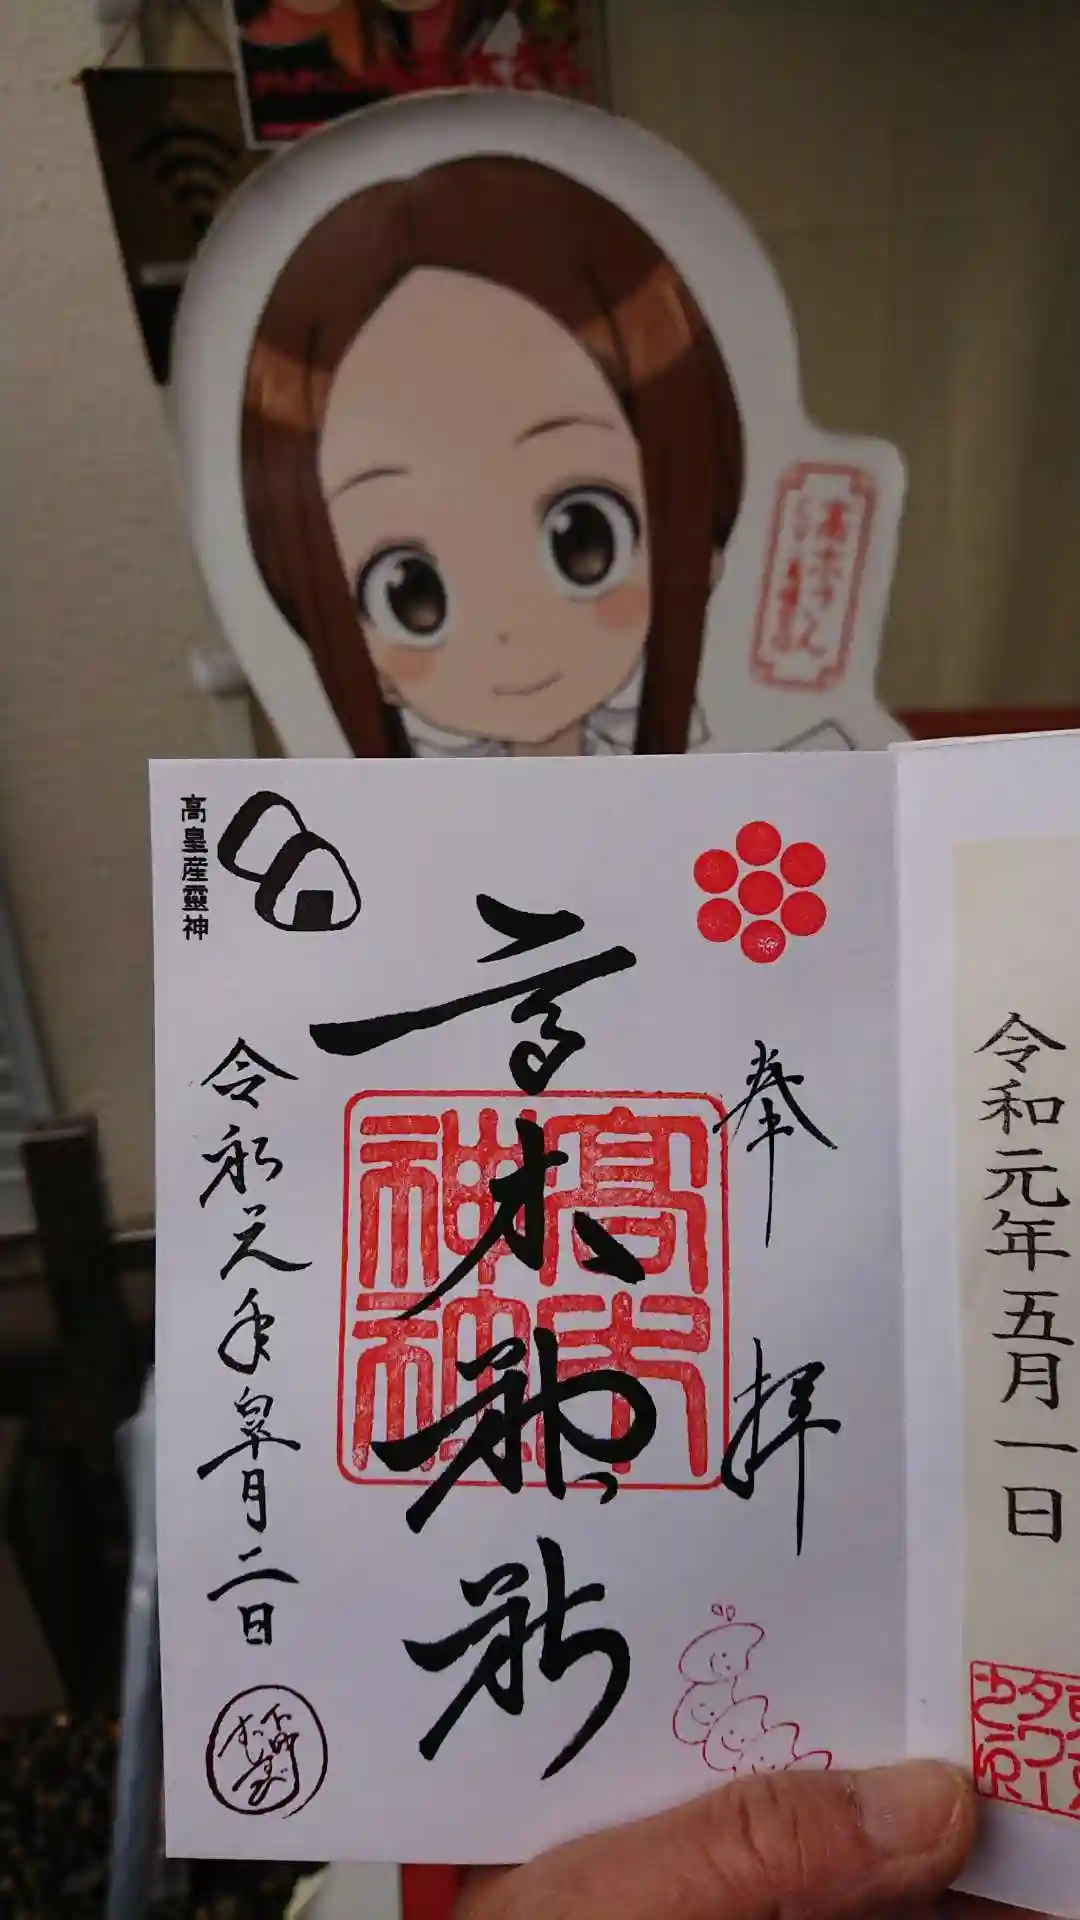 高木さん
令和元年五月一日
奉拝
高木神社
高木神社
高皇産靈神
令和元年皐月二日
下町
むすび